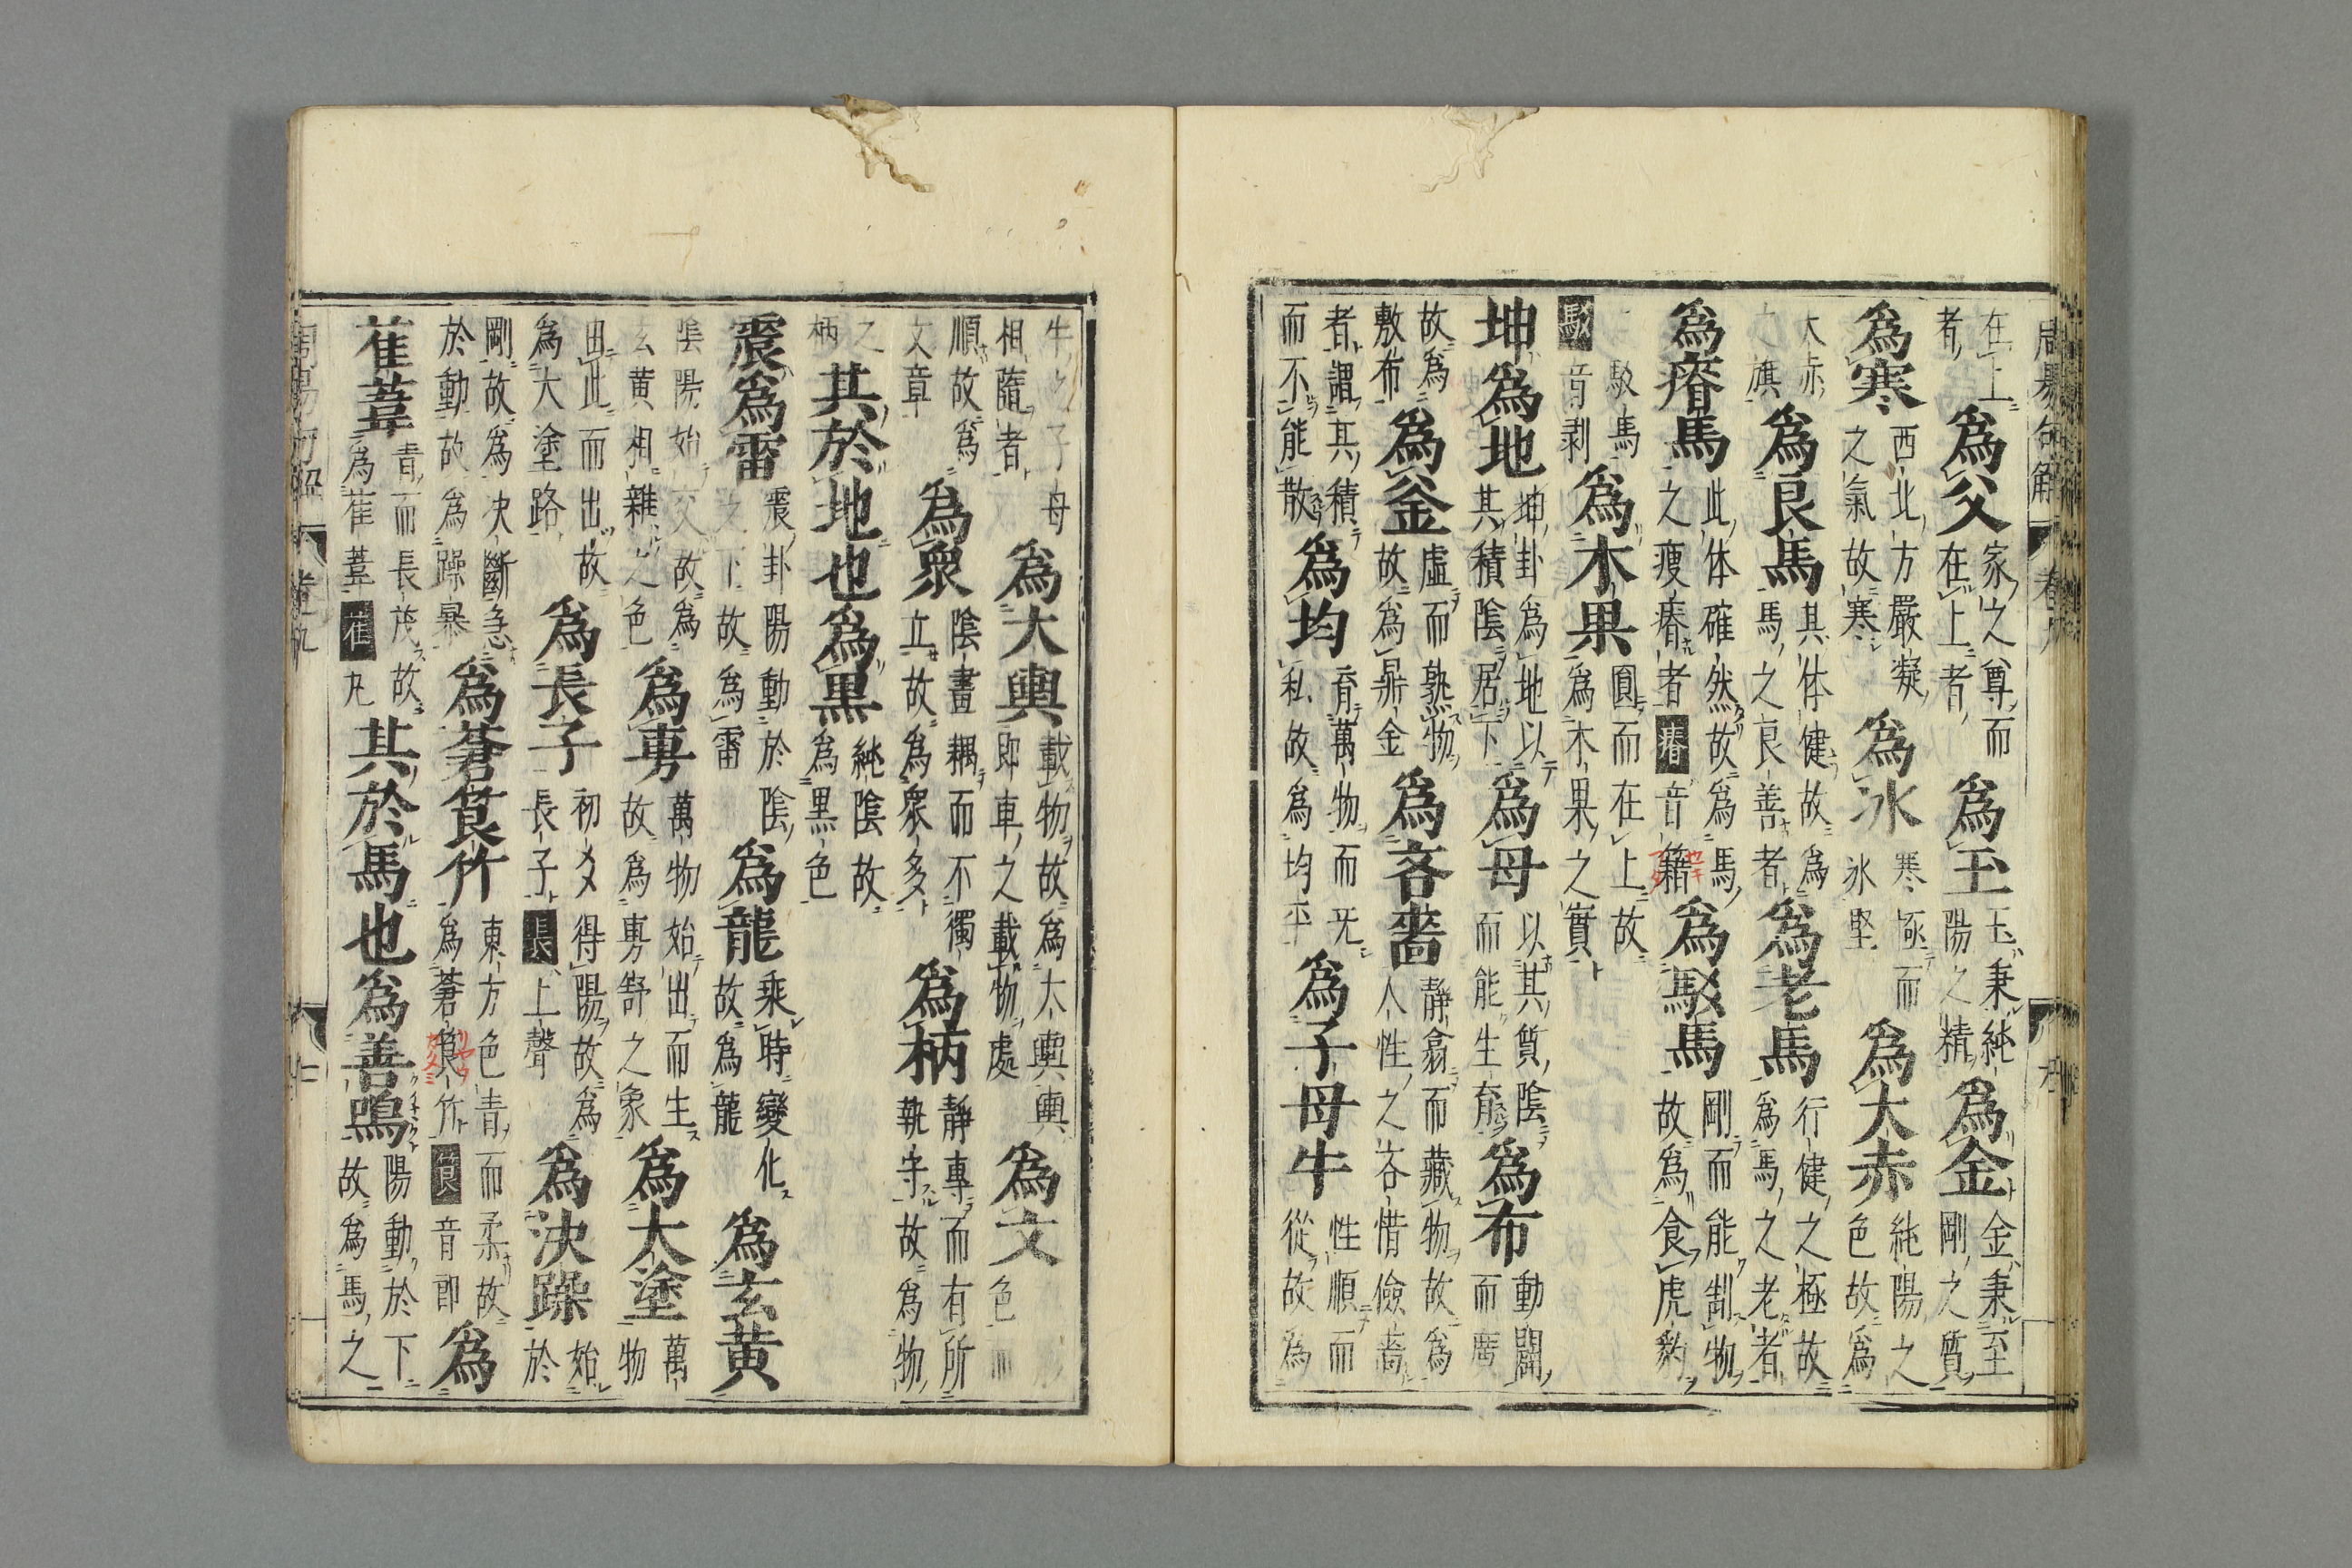 在上者爲父家之尊而在上者爲玉玉秉純陽之精爲金金秉至剛之質
爲寒西北方嚴凝之氣故寒爲冰寒極而冰堅爲大赤純陽之色故爲
大赤之旗爲良馬其体健故爲馬之良善者爲老馬行健之極故爲馬之老者
爲瘠馬此体確然故爲馬之瘦瘠者瘠音籍爲駁馬剛而能制物故爲食虎豹
駁馬駁音剥爲木果圓而在上故爲木果之實
坤爲地坤卦爲地以其積陰居下爲母以其質陰而能生育爲布動闢而廣
故爲敷布爲釜虛而熟物故爲鼎金爲吝嗇靜翕而藏物故爲人性之吝惜儉嗇
者謂其積而不能散爲均育萬物而无私故爲均平爲子母牛性順而從故爲
牛之子母相隨者爲大輿載物故爲大輿輿即車之載物處爲文色
順故爲文章爲衆陰畫耦而不獨立故爲衆多爲柄靜專而有所執守故爲物
之柄其於地也爲黑純陰故爲黑色
震爲雷震卦陽動於陰之下故爲雷爲龍乘時變化故爲龍爲玄黄
陰陽始交故爲玄黄相雜之色爲旉萬物始出而生故爲旉舒之象爲大塗萬物
由此而出故爲大塗路爲長子初爻得陽故爲長子長上聲爲決躁始於
剛故爲决斷急於動故爲躁暴爲蒼筤竹東方色青而柔故爲蒼筤竹筤音郎爲
萑葦青而長茂故爲萑葦萑丸其於馬也爲善鳴陽動於下故爲馬之